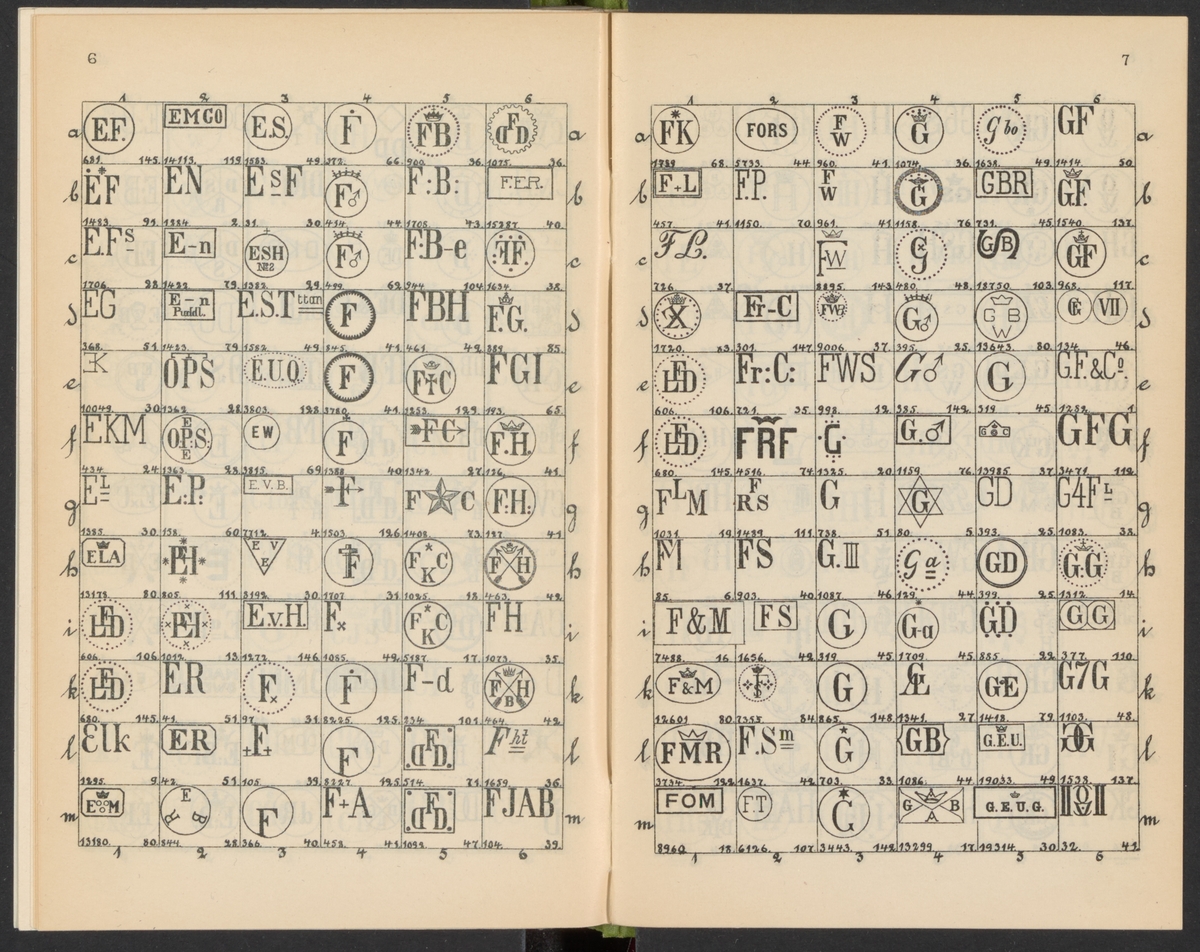 6
1 2 3 4 5 6
a E.F. EMCO E.S. F FB dFD a
681. 145. 14113. 119. 1583. 49. 372. 66. 900. 36. 1075. 36.
b EF EN EsF F♂ F:B: F.ER. b
1483. 91. 1284. 2. 31. 30. 414. 44. 1705. 43. 15287. 40.
c EFs E-n ESH №2 F♂ F:B-e :F: c
1706. 28. 1422. 79. 1382. 29. 499. 62. 944. 104. 1634. 38.
d EG E-n Puddl. E.S.Tttan F FBH F.G. d
368. 51. 1423. 79. 1582. 49. 845. 41. 461. 42. 889. 85.
e EK OPS E.U.Q F F†C FGI e
10049. 30. 1362. 28. 3803. 128. 3780. 41. 1253. 129. 193. 65.
f EKM E O.P.S. E EW F FC F.H. f
434. 24. 1363. 28. 3815. 69. 1388. 40. 1342. 27. 126. 41.
g EL E.P. E.V.B. F F★C F:H: g
1385. 30. 158. 60. 7712. 4. 1503. 126. 1408. 73. 127. 41.
h ELA EH E V E F F*C K F H h
13173. 80. 805. 111. 3192. 30. 1707. 31. 1025. 18. 463. 42.
i LED PEI E.v.H. F× F*C K FH i
606. 106. 1012. 13. 1272. 146. 1085. 49. 5187. 17. 1073. 35.
k LED ER F× F F-d F H B k
680. 145. 41. 51. 97. 31. 8225. 125. 234. 101. 464. 42.
l Elk ER +F+ F dFD Fht l
1295. 9. 42. 51. 105. 39. 8227. 125. 514. 71. 1659. 36.
m EooM E H B F F+A dFD FJAB m
13180. 80. 844. 28. 366. 40. 458. 41. 1092. 47. 104. 39.
1 2 3 4 5 6
7
1 2 3 4 5 6
a FK FORS F W G Gbo GF a
1789. 68. 5733. 44. 960. 41. 1074. 36. 1638. 49. 1414. 50.
b F+L F.P. F W G GBR GF. b
457. 41. 1150. 70. 961. 41. 1158. 76. 731. 45. 1540. 137.
c F.L. FW G GB GF c
726. 37. 8895. 143. 480. 48. 18750. 103. 968. 117.
d X Fr-C FW G♂ G B W G VII d
1720. 83. 301. 147. 9006. 37. 395. 25. 13643. 80. 134. 46.
e LED Fr:C: FWS G♂ G G.F.&Co. e
606. 106. 721. 35. 998. 12. 385. 142. 319. 45. 1282. 1
f LED FRF G G.♂ GFG f
680. 145. 4516. 74. 1325. 20. 1159. 76. 13985. 37. 3471. 112.
g FLM F RS G G GD G4FL g
1031. 19. 1489. 111. 738. 51. 80. 5. 393. 25. 1083. 38.
h FM FS G.III Ga GD G.G h
85. 6. 903. 40. 1087. 46. 129. 44. 399. 25. 1312. 14.
i F&M FS G G-a GD GG i
7488. 16. 1656. 42. 319. 45. 1709. 45. 885. 22. 377. 110.
k F&M F G GL G+E G7G k
12601. 80. 7355. 84. 865. 148. 1341. 27. 1418. 79. 1103. 48.
l FMR F.Sm G GB G.E.U. GG l
3734. 122. 1637. 42. 703. 33. 1086. 44. 19033. 49. 1538. 137.
m FOM F.T G G B A G.E.U.G. m
8960. 18. 6126. 107. 3443. 142. 13299. 17. 19314. 30. 32. 41.
2 3 4 5 6